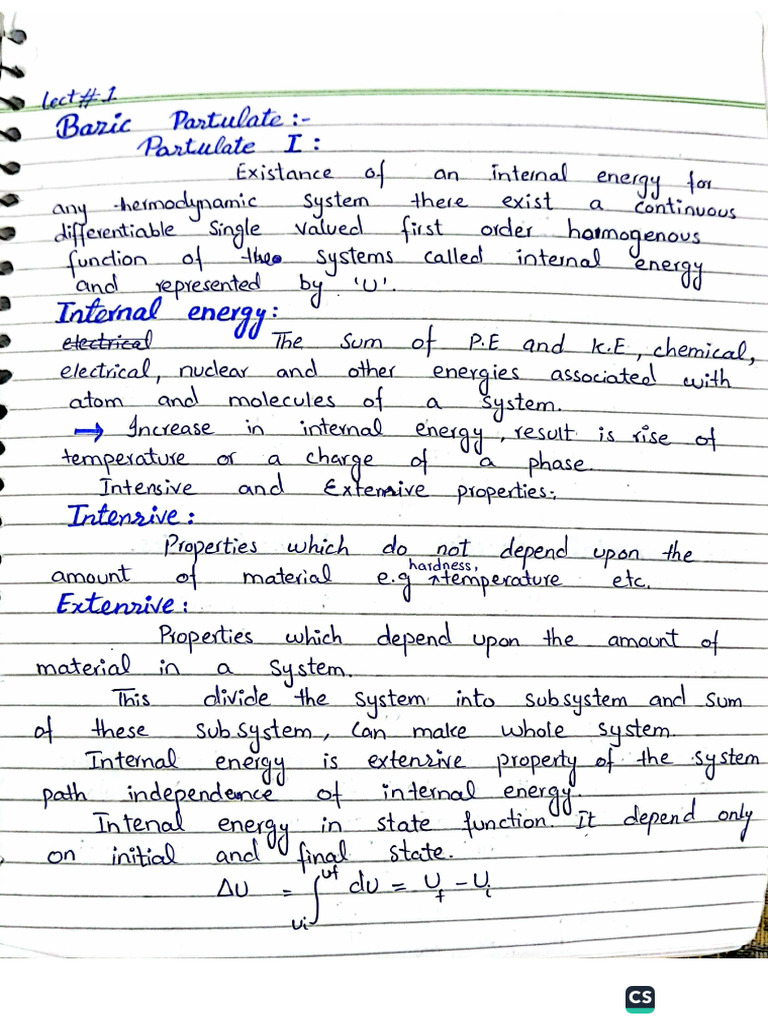 Lect # 1
Basic Partulate :-
Partulate I :
Existance of an internal energy for
any thermodynamic system there exist a continuous
differentiable single valued first order homogenous
function of the systems called internal energy
and represented by 'U'.
Internal energy :
electrical The sum of P.E and K.E, chemical,
electrical, nuclear and other energies associated with
atom and molecules of a system.
→ Increase in internal energy, result is rise of
temperature or a charge of a phase.
Intensive and Extensive properties:
Intensive :
Properties which do not depend upon the
amount of material e.g hardness, temperature etc.
Extensive :
Properties which depend upon the amount of
material in a system.
This divide the system into subsystem and sum
of these subsystem, can make whole system.
Internal energy is extensive property of the system
path independence of internal energy.
Intenal energy in state function. It depend only
on initial and final state.
ΔU = ∫ᵤᵢᵁᶠ dU = U_f - U_i
CS